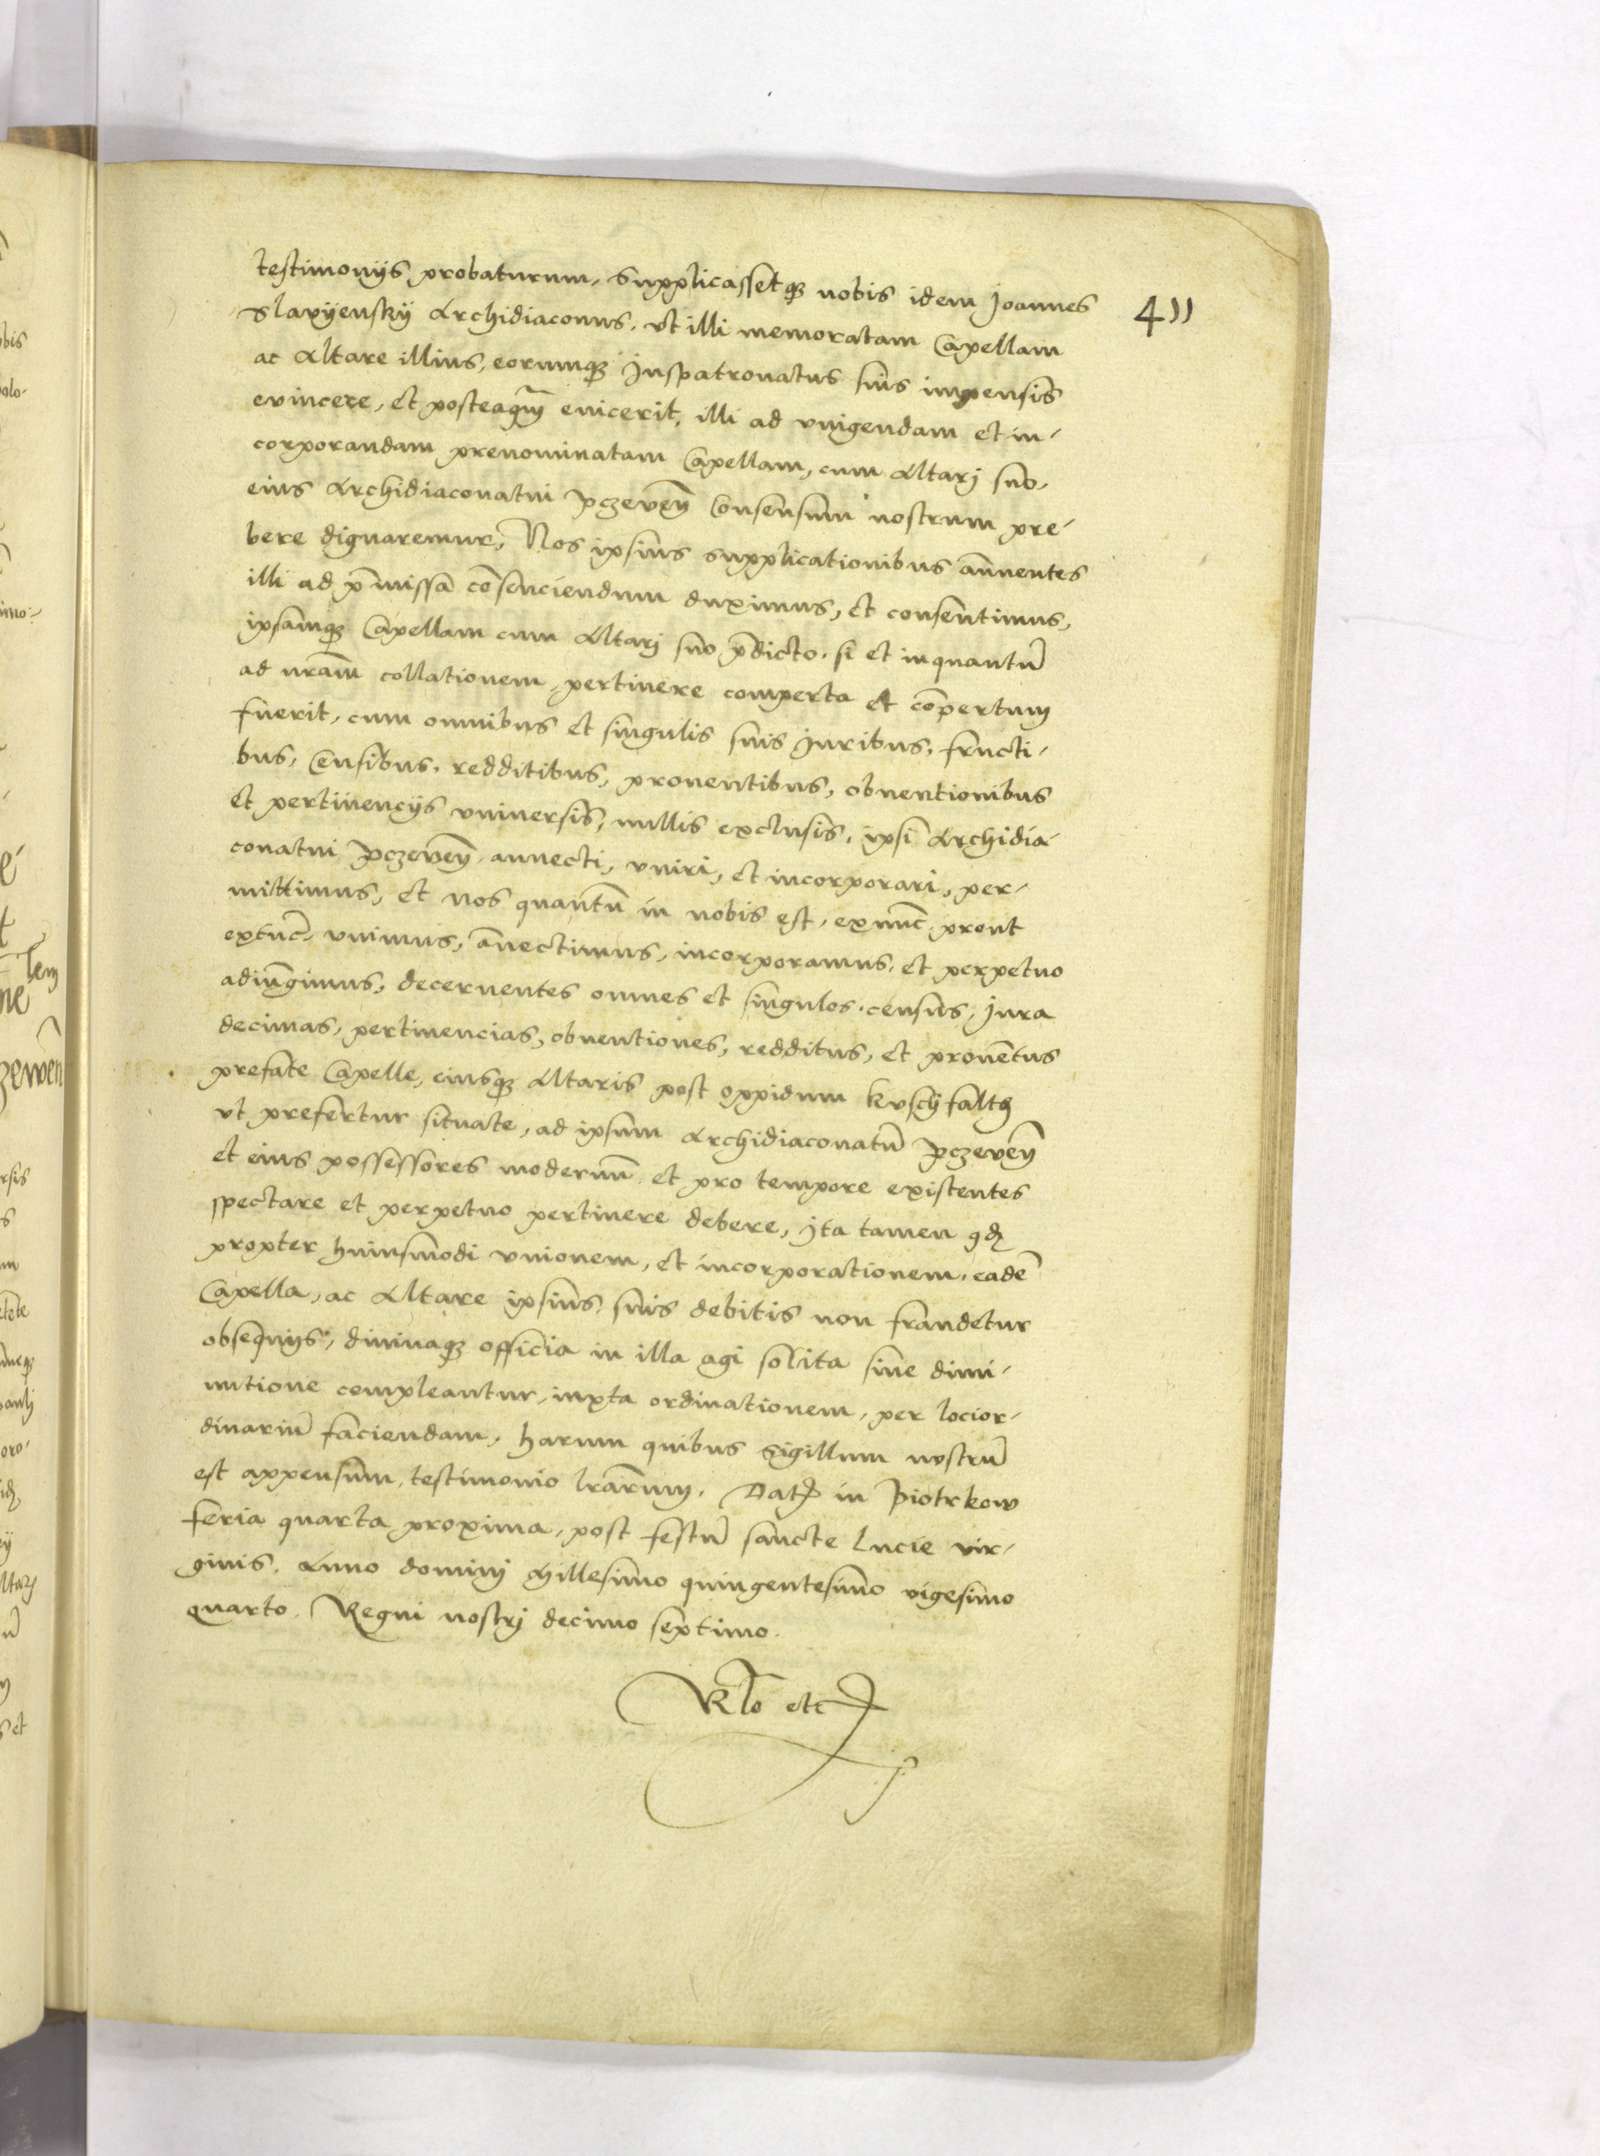 testimonijs probaturum, supplicassetq3 nobis idem Joannes
411
Slavyensky Archidiaconus, vt illi memoratam Capellam
ac Altare illius, eorumq3 Juspatronatus suis impensis
evincere, et posteaq̃m evicerit, illi ad vnigendam et in-
corporandam prenominatam Capellam, cum Altarj suo,
eius Archidiaconatui Pczeveñ Consensum nostrum pre-
bere dignaremur, Nos ipsius supplicationibus añuentes
illi ad p̃missa cõsenciendum duximus, et consentimus,
ipsamq3 Capellam cum Altarj suo p̃dicto, si et inquantũ
ad nr̃am collationem pertinere comperta et cõpertum
fuerit, cum omnibus et singulis suis Juribus, fructi-
bus, Censibus, redditibus, proventibus, obventionibus
et pertinencijs vniversis, nullis exclusis, ipsi Archidia-
conatui Pczeveñ annecti, vniri, et incorporari, per-
mittimus, et nos quantũ in nobis est, exnũc prout
extũc, vnimus, ãnectimus, incorporamus, et perpetuo
adiũgimus, decernentes omnes et singulos census, Jura
decimas, pertinencias, obventiones, redditus, et provẽtus
prefate Capelle, eiusq3 Altaris post oppidum Kvschfalth
vt prefertur situate, ad ipsum Archidiaconatũ Pczeveñ
et eius possessores modernũ et pro tempore existentes
spectare et perpetuo pertinere debere, Jta tamen qd
propter huiusmodi vnionem, et incorporationem, eadẽ
Capella, ac Altare ipsius, suis debitis non fraudetur
obsequijs, divinaq3 officia in illa agi solita sine dimi-
nutione compleantur, iuxta ordinationem, per locior-
dinariũ faciendam, harum quibus Sigillum nostrũ
est appensum, testimonio lr̃arum. Dat̃ in Piotrkow
feria quarta proxima, post festũ sancte Lucie vir-
ginis. Anno dominj Millesimo quingentesimo vigesimo
quarto. Regni nostrj decimo septimo.
Rl̃o etc